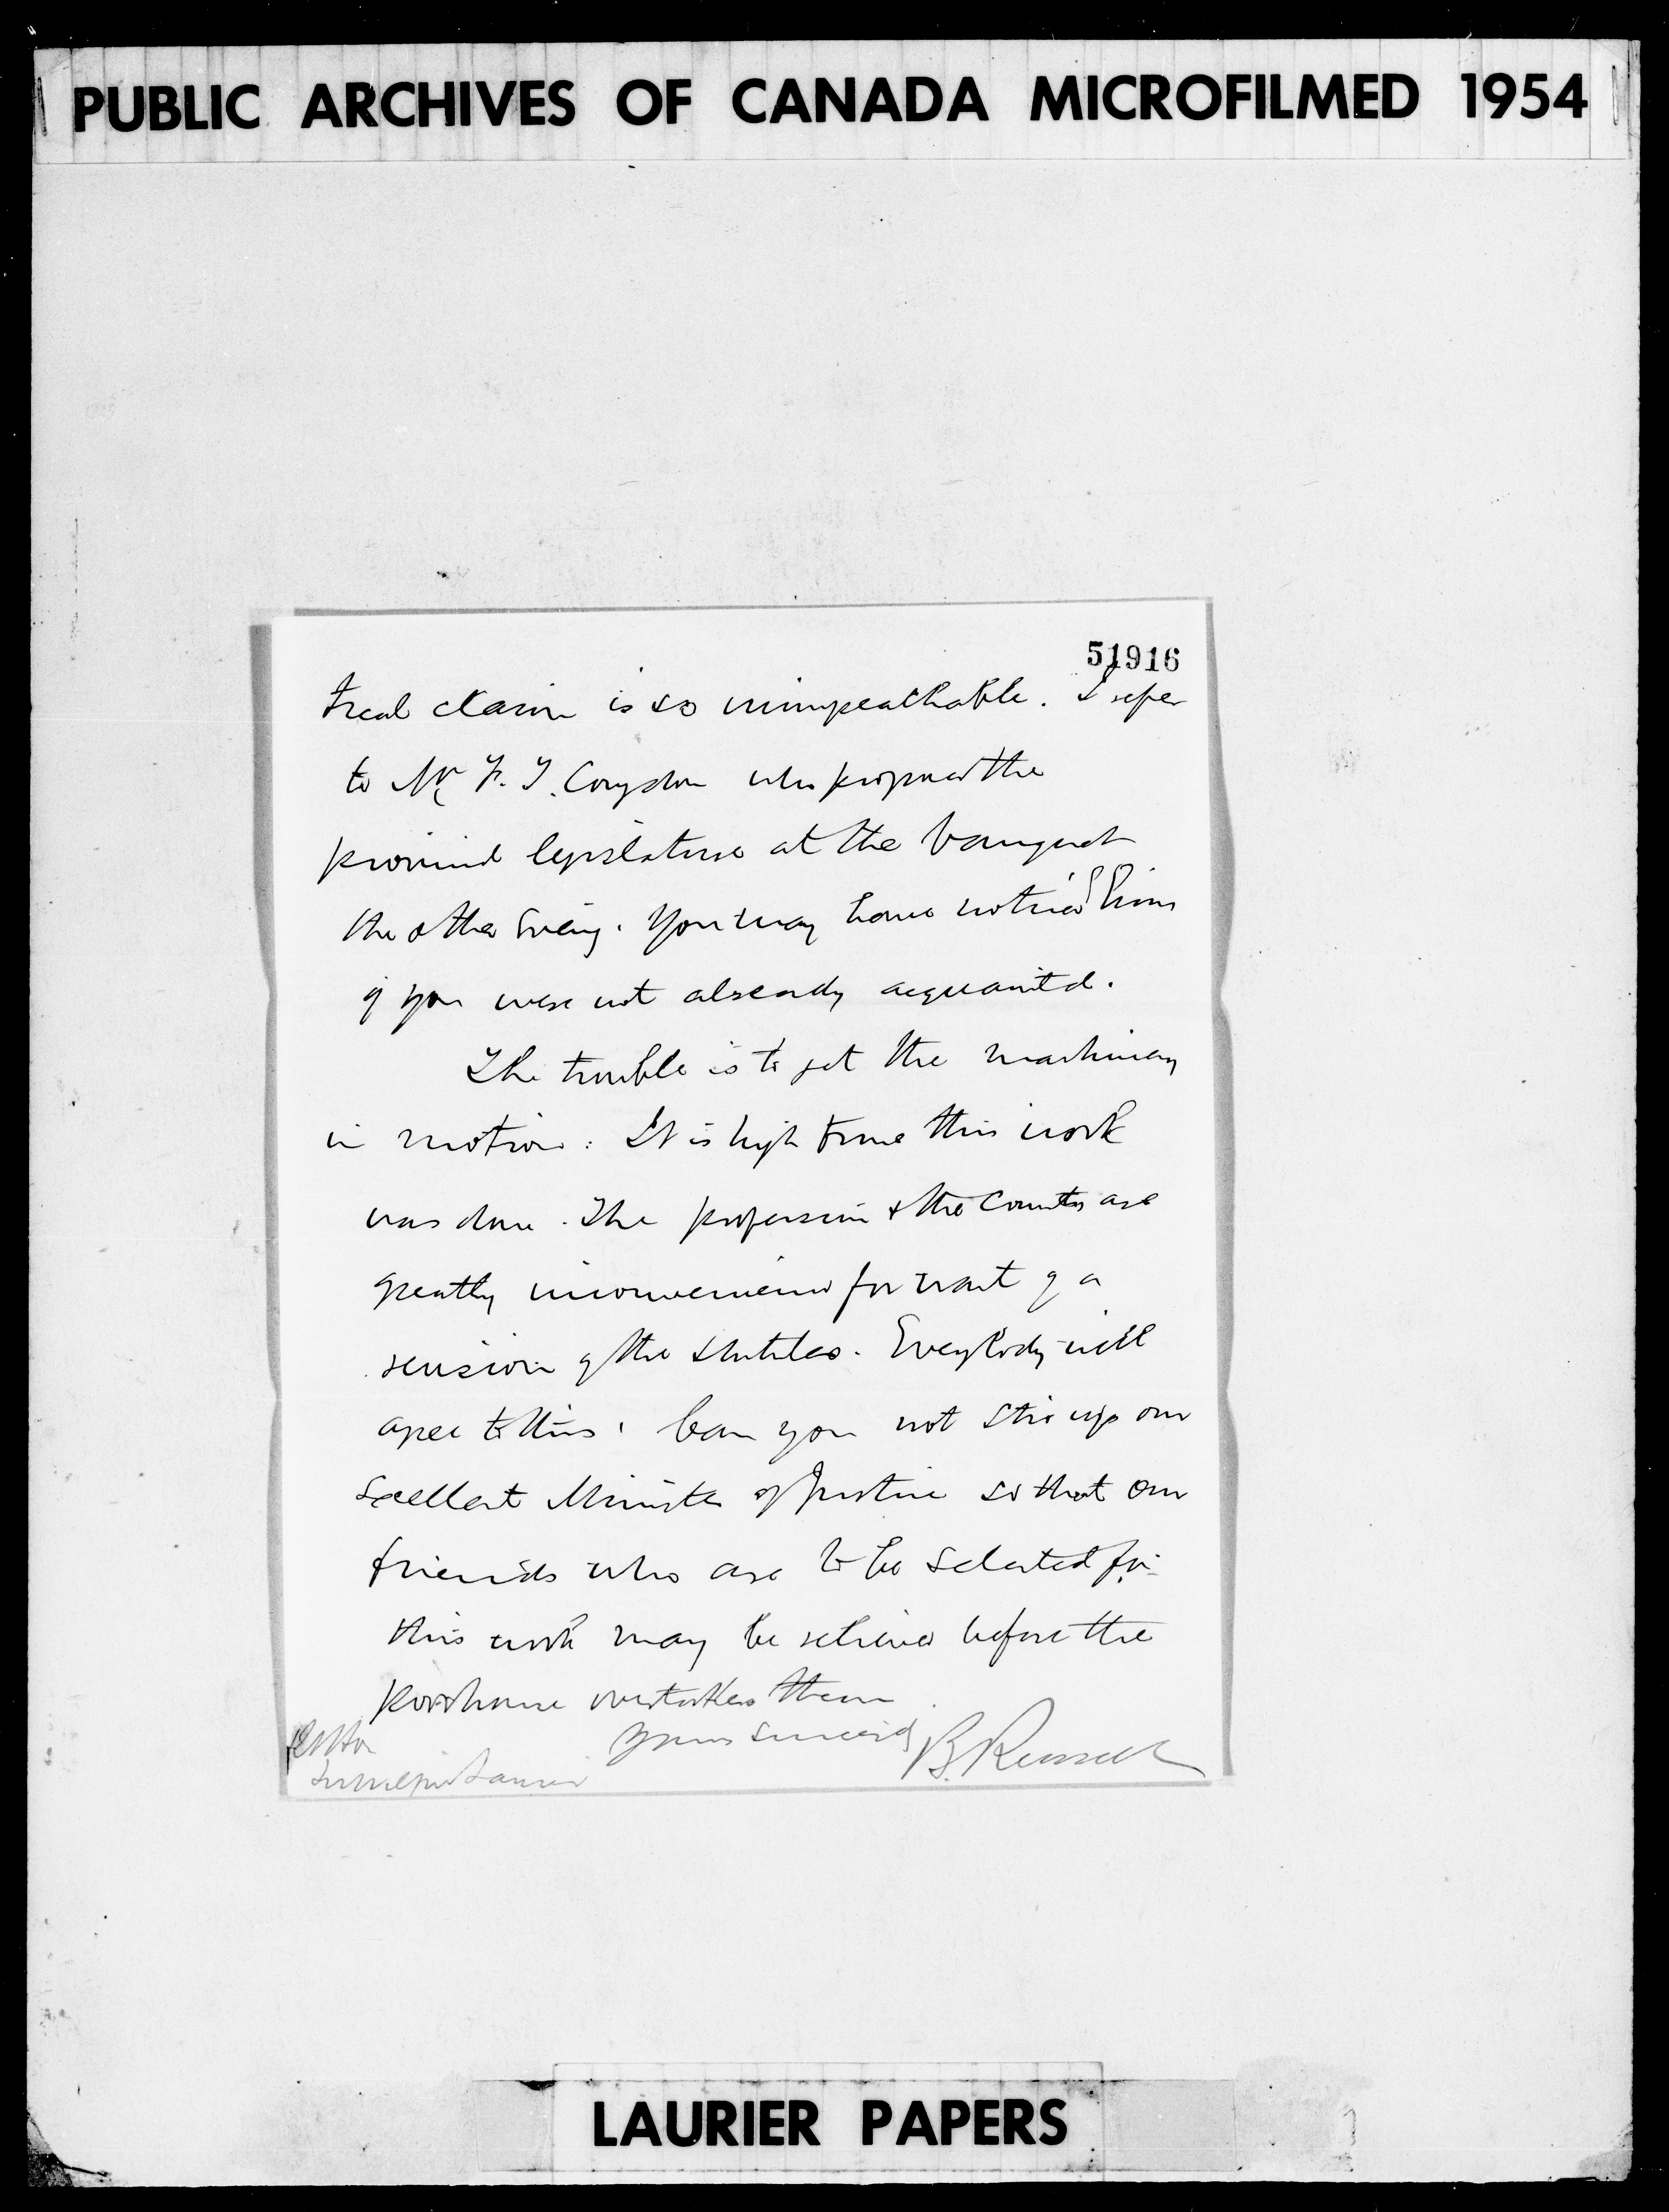 PUBLIC ARCHIVES OF CANADA MICROFILMED 1954
51916
claim is so unimpeachable. I refer
to Mr F. T. Congdon who proposed the
provincial legislature at the banquet
the other Eveing. You may have noticed him
if you were not already acquainted.
The trouble is to get the machinery
in motion. It is high time this work
was done. The profession & the Courts are
greatly inconvenienced for want of a
revision of the Statutes. Everybody will
agree to this. Can you not stir up our
Excellent Minister of Justice so that our
friends who are to be selected for
this work may be relieved before the
poorhouse overtakes them
Yours sincerely B. Russell
Rt Hon
Sir Wilfrid Laurier
LAURIER PAPERS